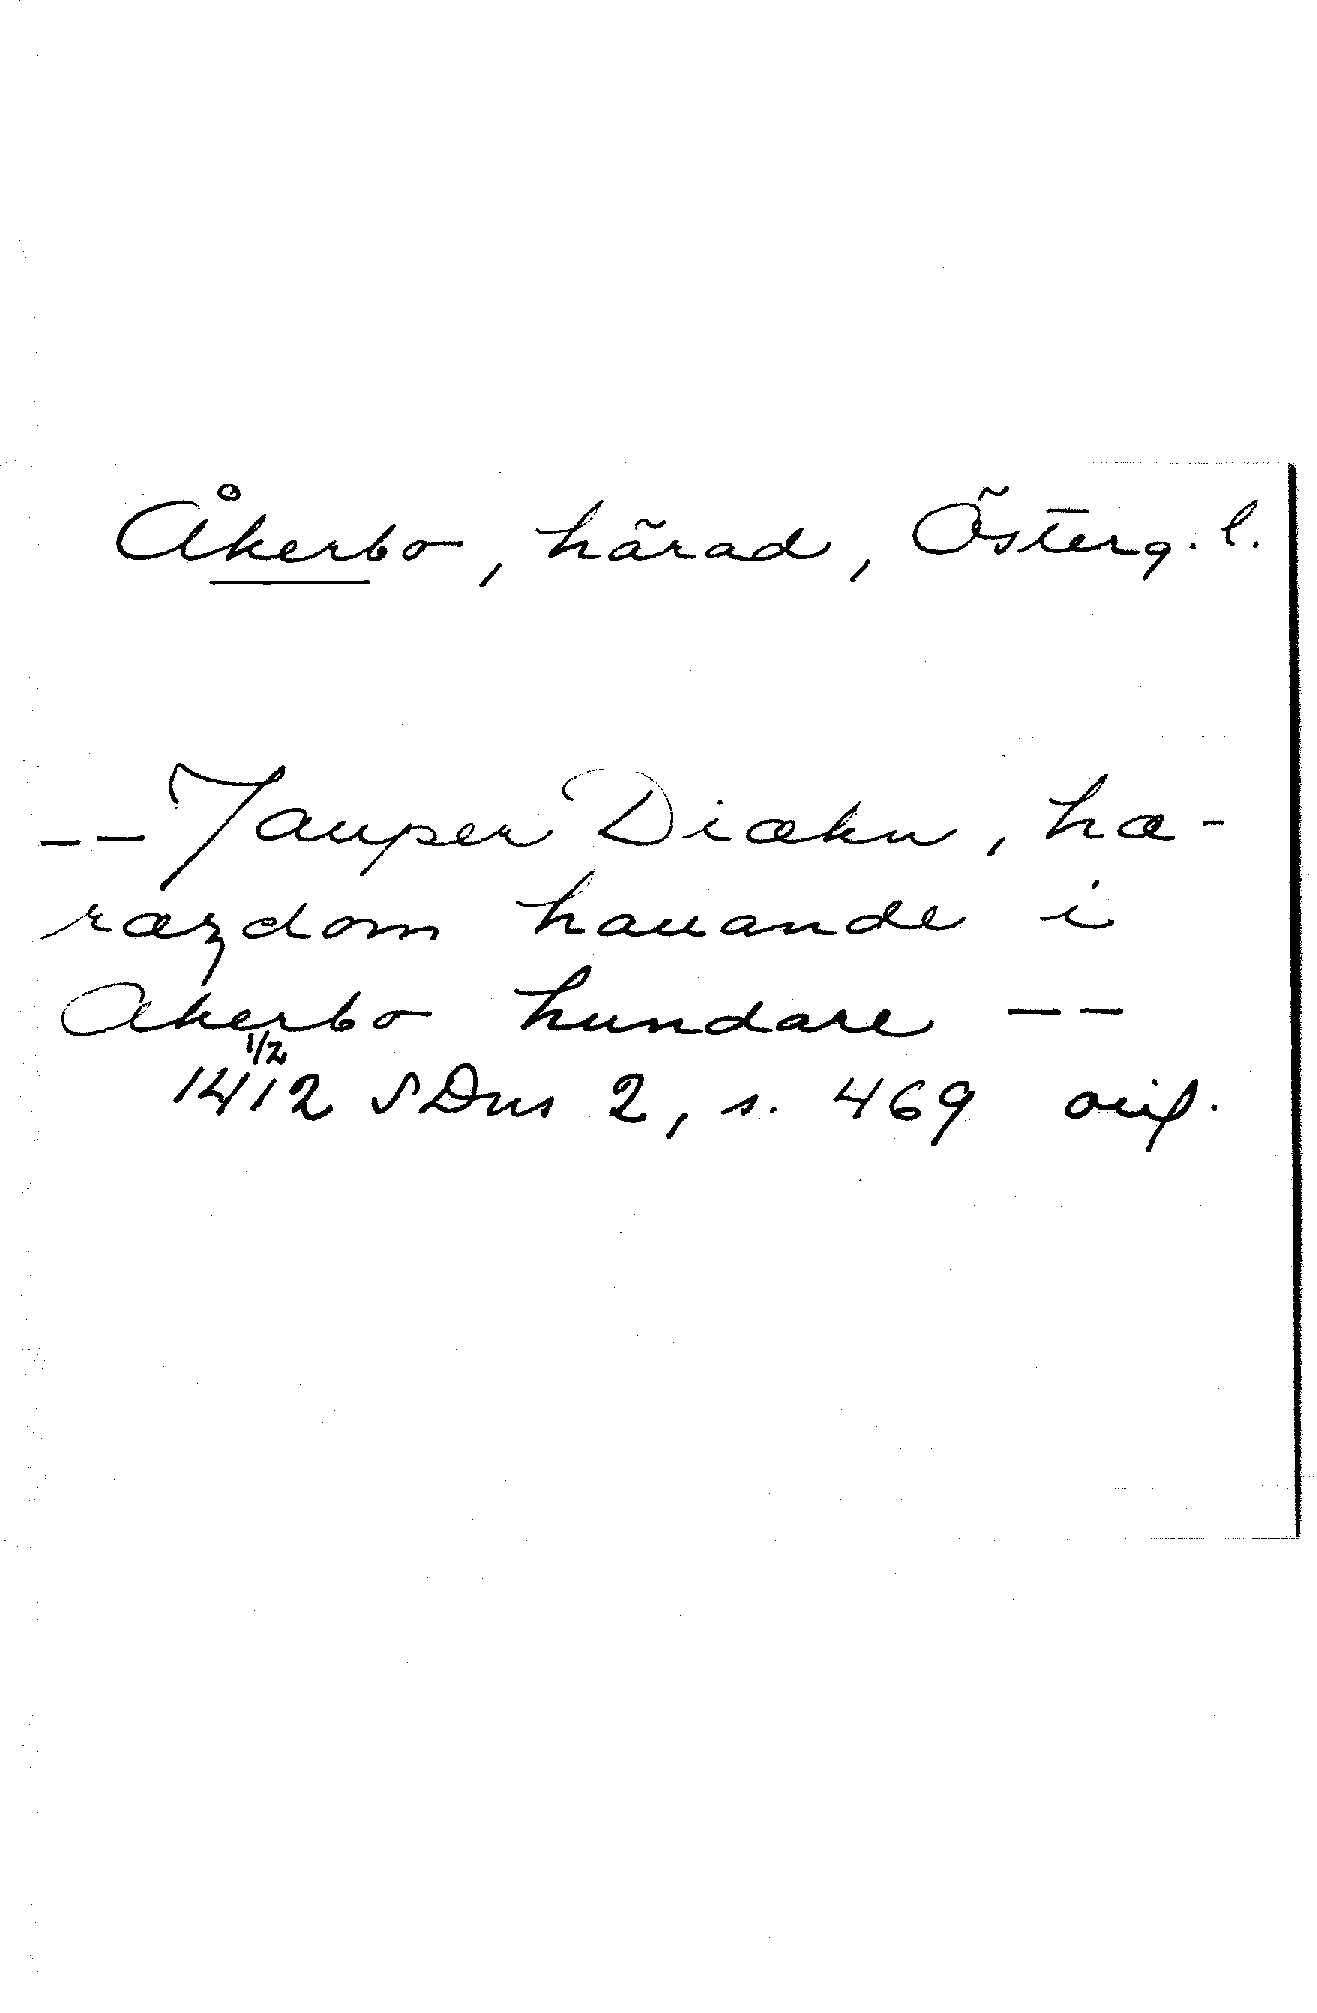 Åkerbo, härad, Österg. l.
-- Jauper Diækn, hæ-
ræzdom hauande i
Akerbo hundare --
1412 1/2 SDns 2, s. 469 orig.